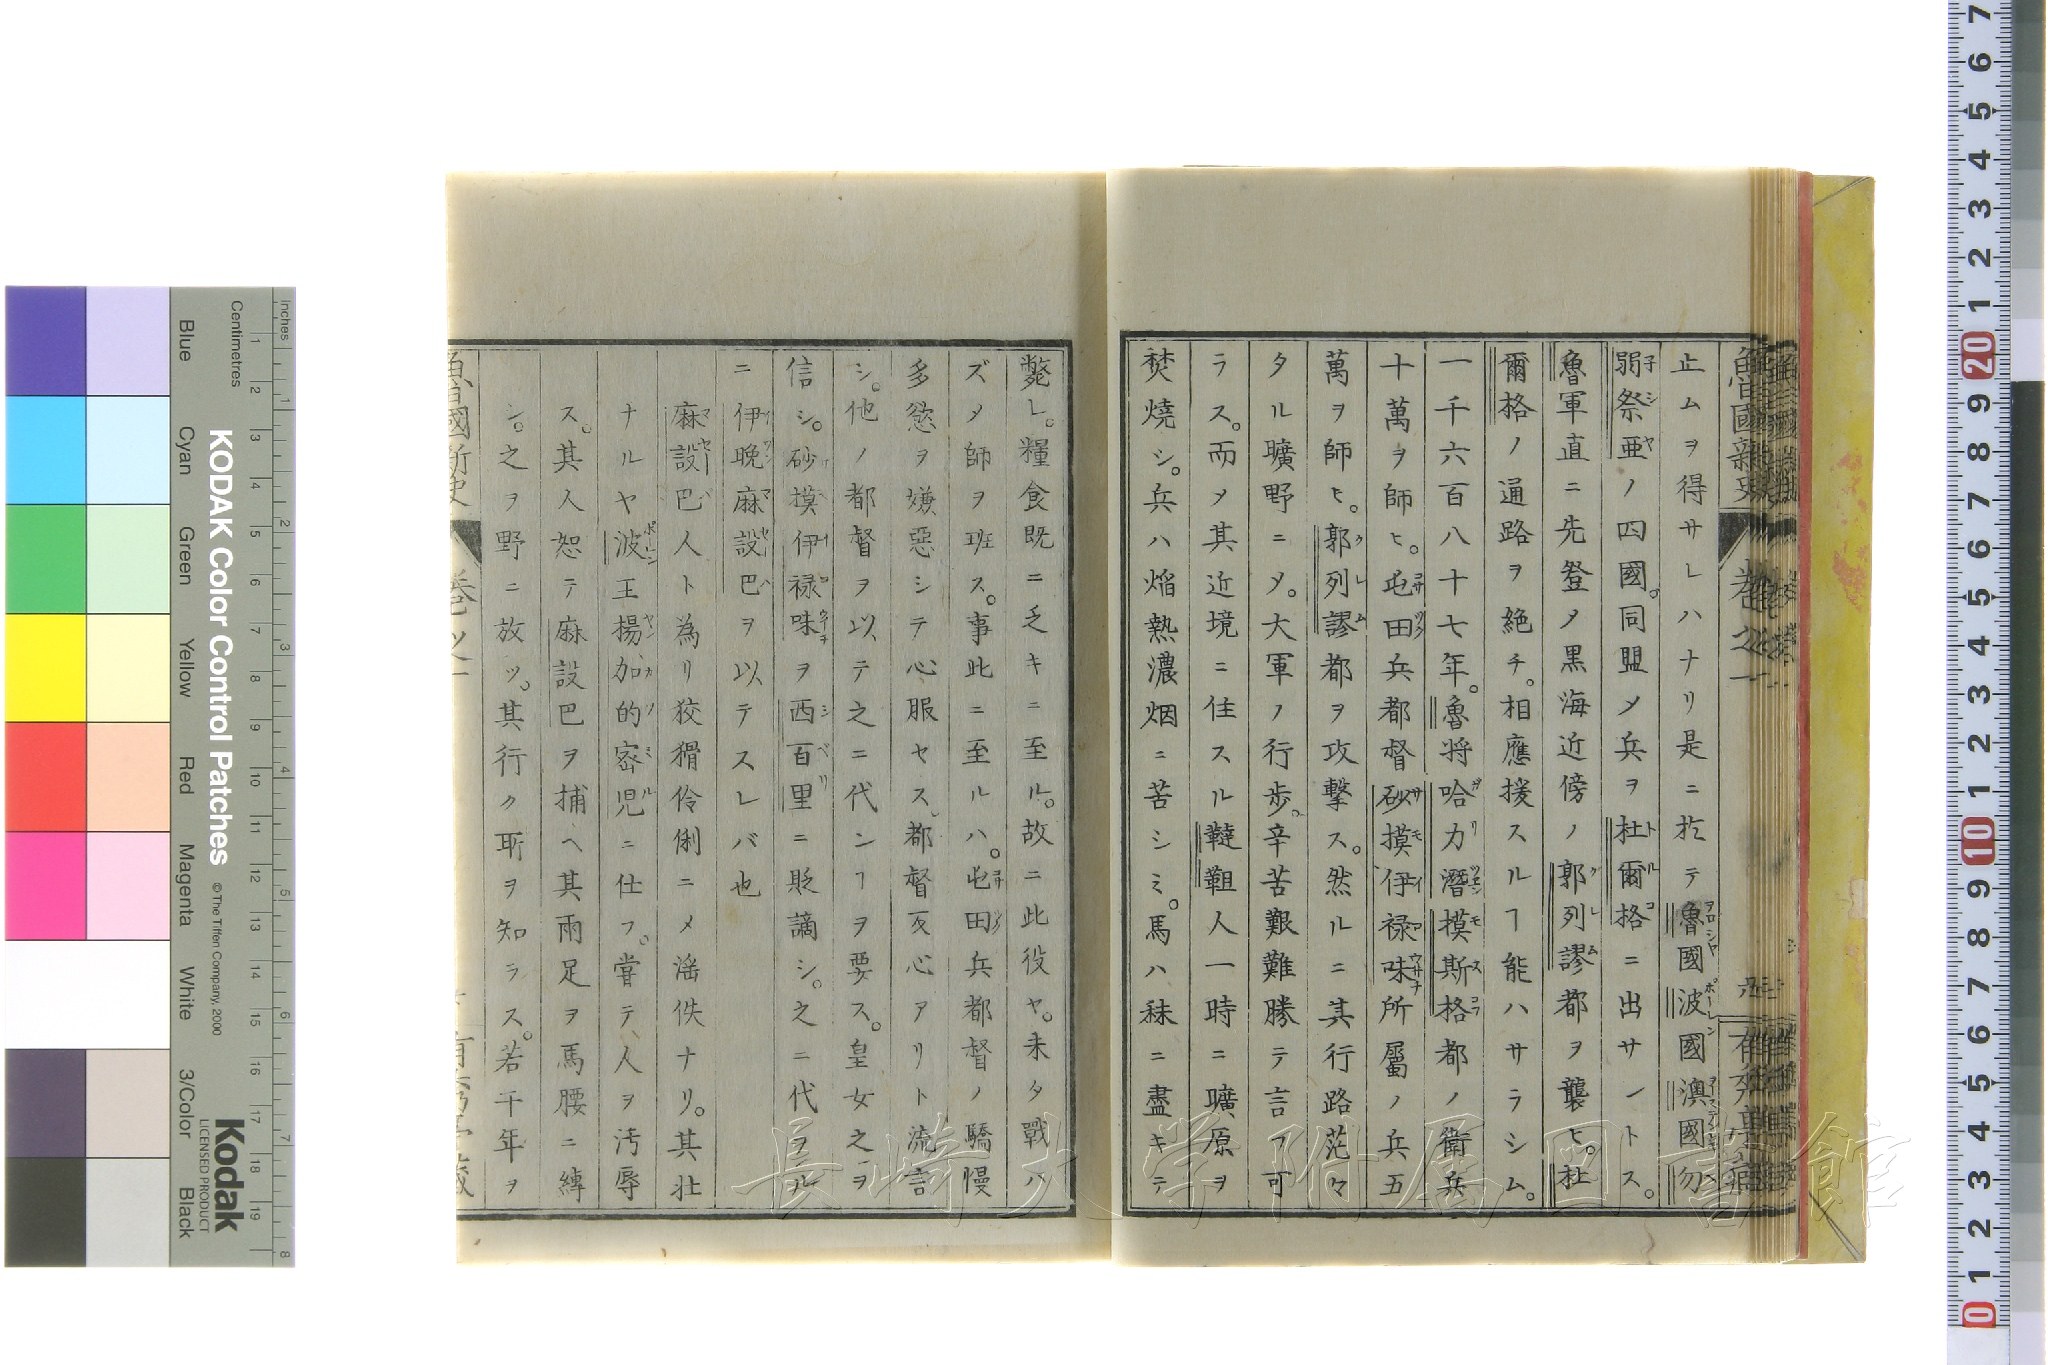 止ムヲ得サレハナリ是ニ於テ魯國波國澳國勿
弱祭亜ノ四國。同盟メ兵ヲ杜爾格ニ出サントス。
魯軍直ニ先登ノ黒海近傍ノ郭列謬都ヲ襲ヒ。杜
爾格ノ通路ヲ絶チ。相應援スルヿ能ハサラシム。
一千六百八十七年。魯将哈力潛模斯格都ノ衛兵
十萬ヲ師ヒ。屯田兵都督砂摸伊禄味所屬ノ兵五
萬ヲ師ヒ。郭列謬都ヲ攻撃ス。然ルニ其行路茫々
タル曠野ニメ。大軍ノ行歩。辛苦艱難勝テ言フ可
ラス。而メ其近境ニ住スル韃靼人一時ニ曠原ヲ
焚燒シ。兵ハ焔熱濃烟ニ苦シミ。馬ハ秣ニ盡キテ
斃レ。糧食既ニ乏キニ至ル。故ニ此役ヤ。未タ戰ハ
ズメ師ヲ班ス。事此ニ至ルハ。屯田兵都督ノ驕慢
多慾ヲ嫌惡シテ心服セス。都督反心アリト流言
シ。他ノ都督ヲ以テ之ニ代ンヿヲ要ス。皇女之ヲ
信シ。砂摸伊禄味ヲ西百里ニ貶謫シ。之ニ代ヲル
ニ伊晩麻設巴ヲ以テスレバ也
麻設巴人ト為リ狡猾伶俐ニメ滛佚ナリ。其壮
ナルヤ波王揚加的宻児ニ仕フ。嘗テ人ヲ汚辱
ス。其人恕テ麻設巴ヲ捕ヘ其兩足ヲ馬腰ニ縛
シ。之ヲ野ニ放ッ。其行ク所ヲ知ラス。若干年ヲ
魯國新史
卷之
長崎大学附属図書館
KODAK Color Control Patches
© The Tiffen Company, 2000
Kodak
LICENSED PRODUCT
Centimetres
Inches
Blue
Cyan
Green
Yellow
Red
Magenta
White
3/Color
Black